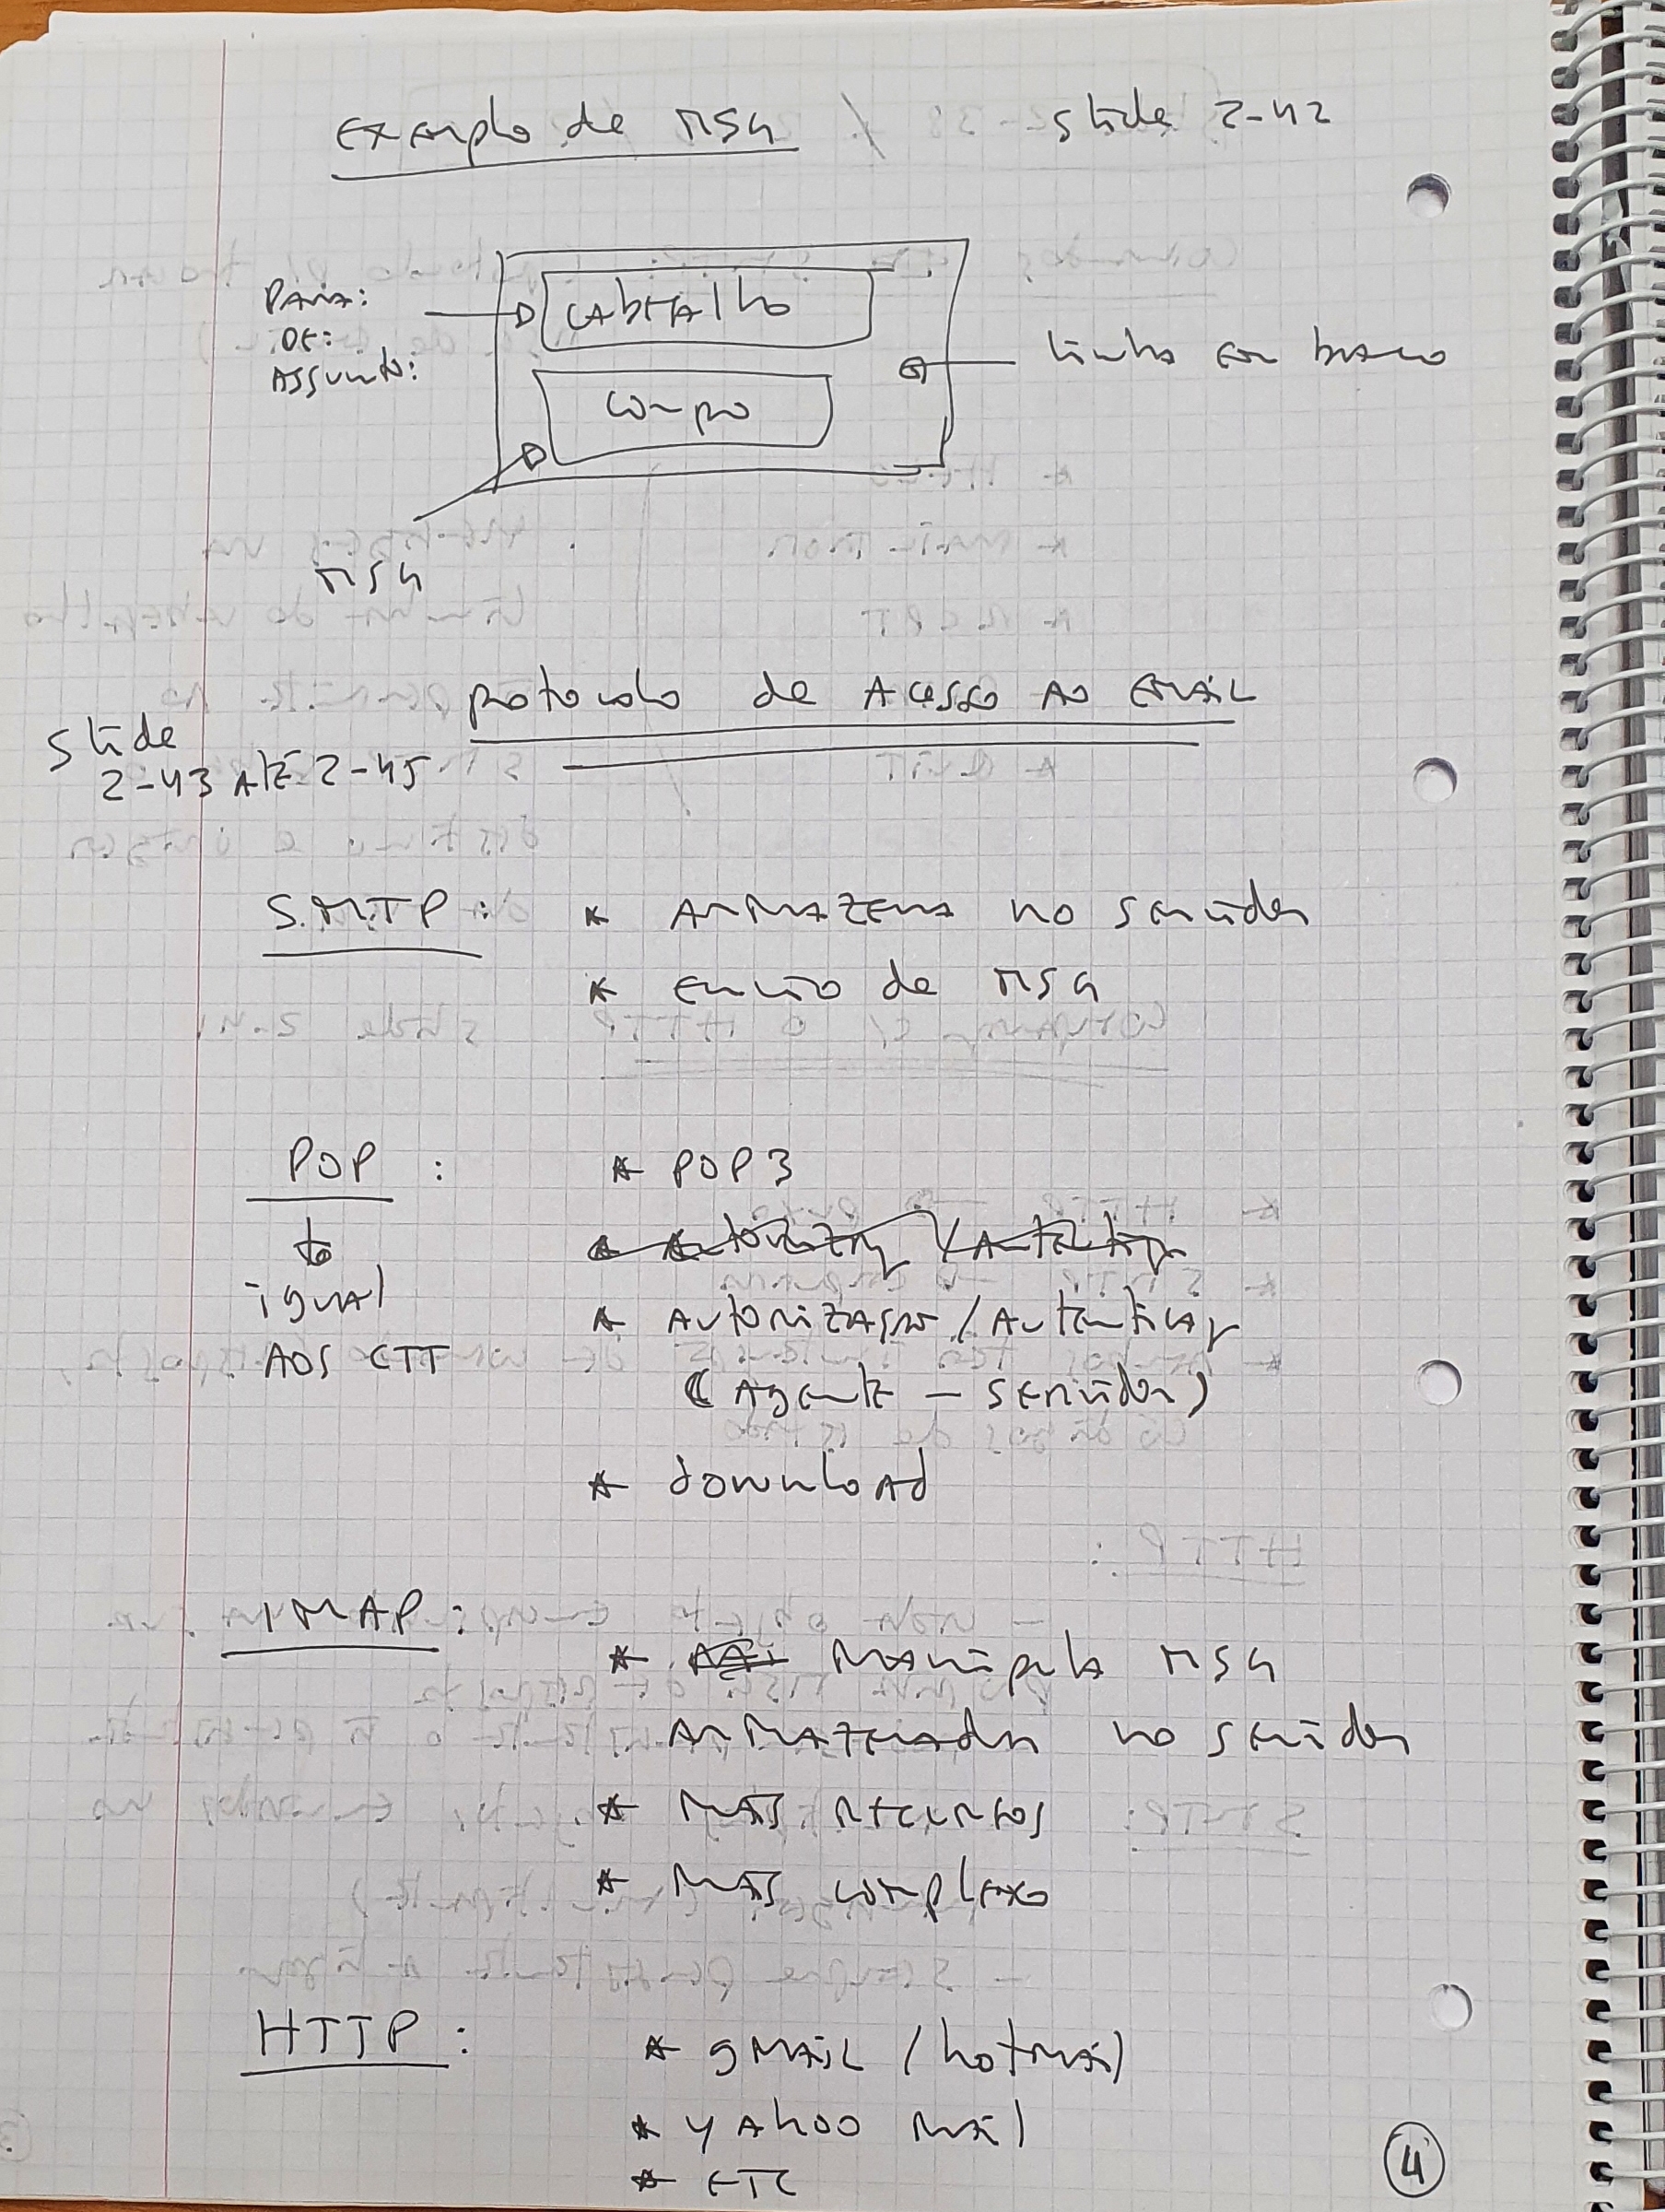 Exemplo de MSG slide 2-42
Para:
De:
Assunto:
cabeçalho
linha em branco
corpo
MSG
protocolo de Acesso ao Email
slide
2-43 até 2-45
SMTP: * Armazena no servidor
* envio de MSG
POP : * POP3
igual
aos CTT
* Autorização / Autenticaç
(Agente - servidor)
* download
IMAP: * Manipula MSG
Armazenadas no servidor
* Mais recursos
* Mais complexo
HTTP: * gmail / hotmail
* yahoo mail
* ETC
4